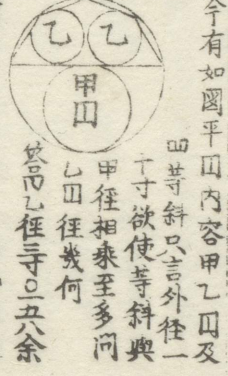 今有如圖平円内容甲乙円及
四等斜只言外径一
十寸欲使等斜與
甲径相乗至多問
乙円径幾何
答曰乙径三寸〇一五八余
乙
乙
甲円